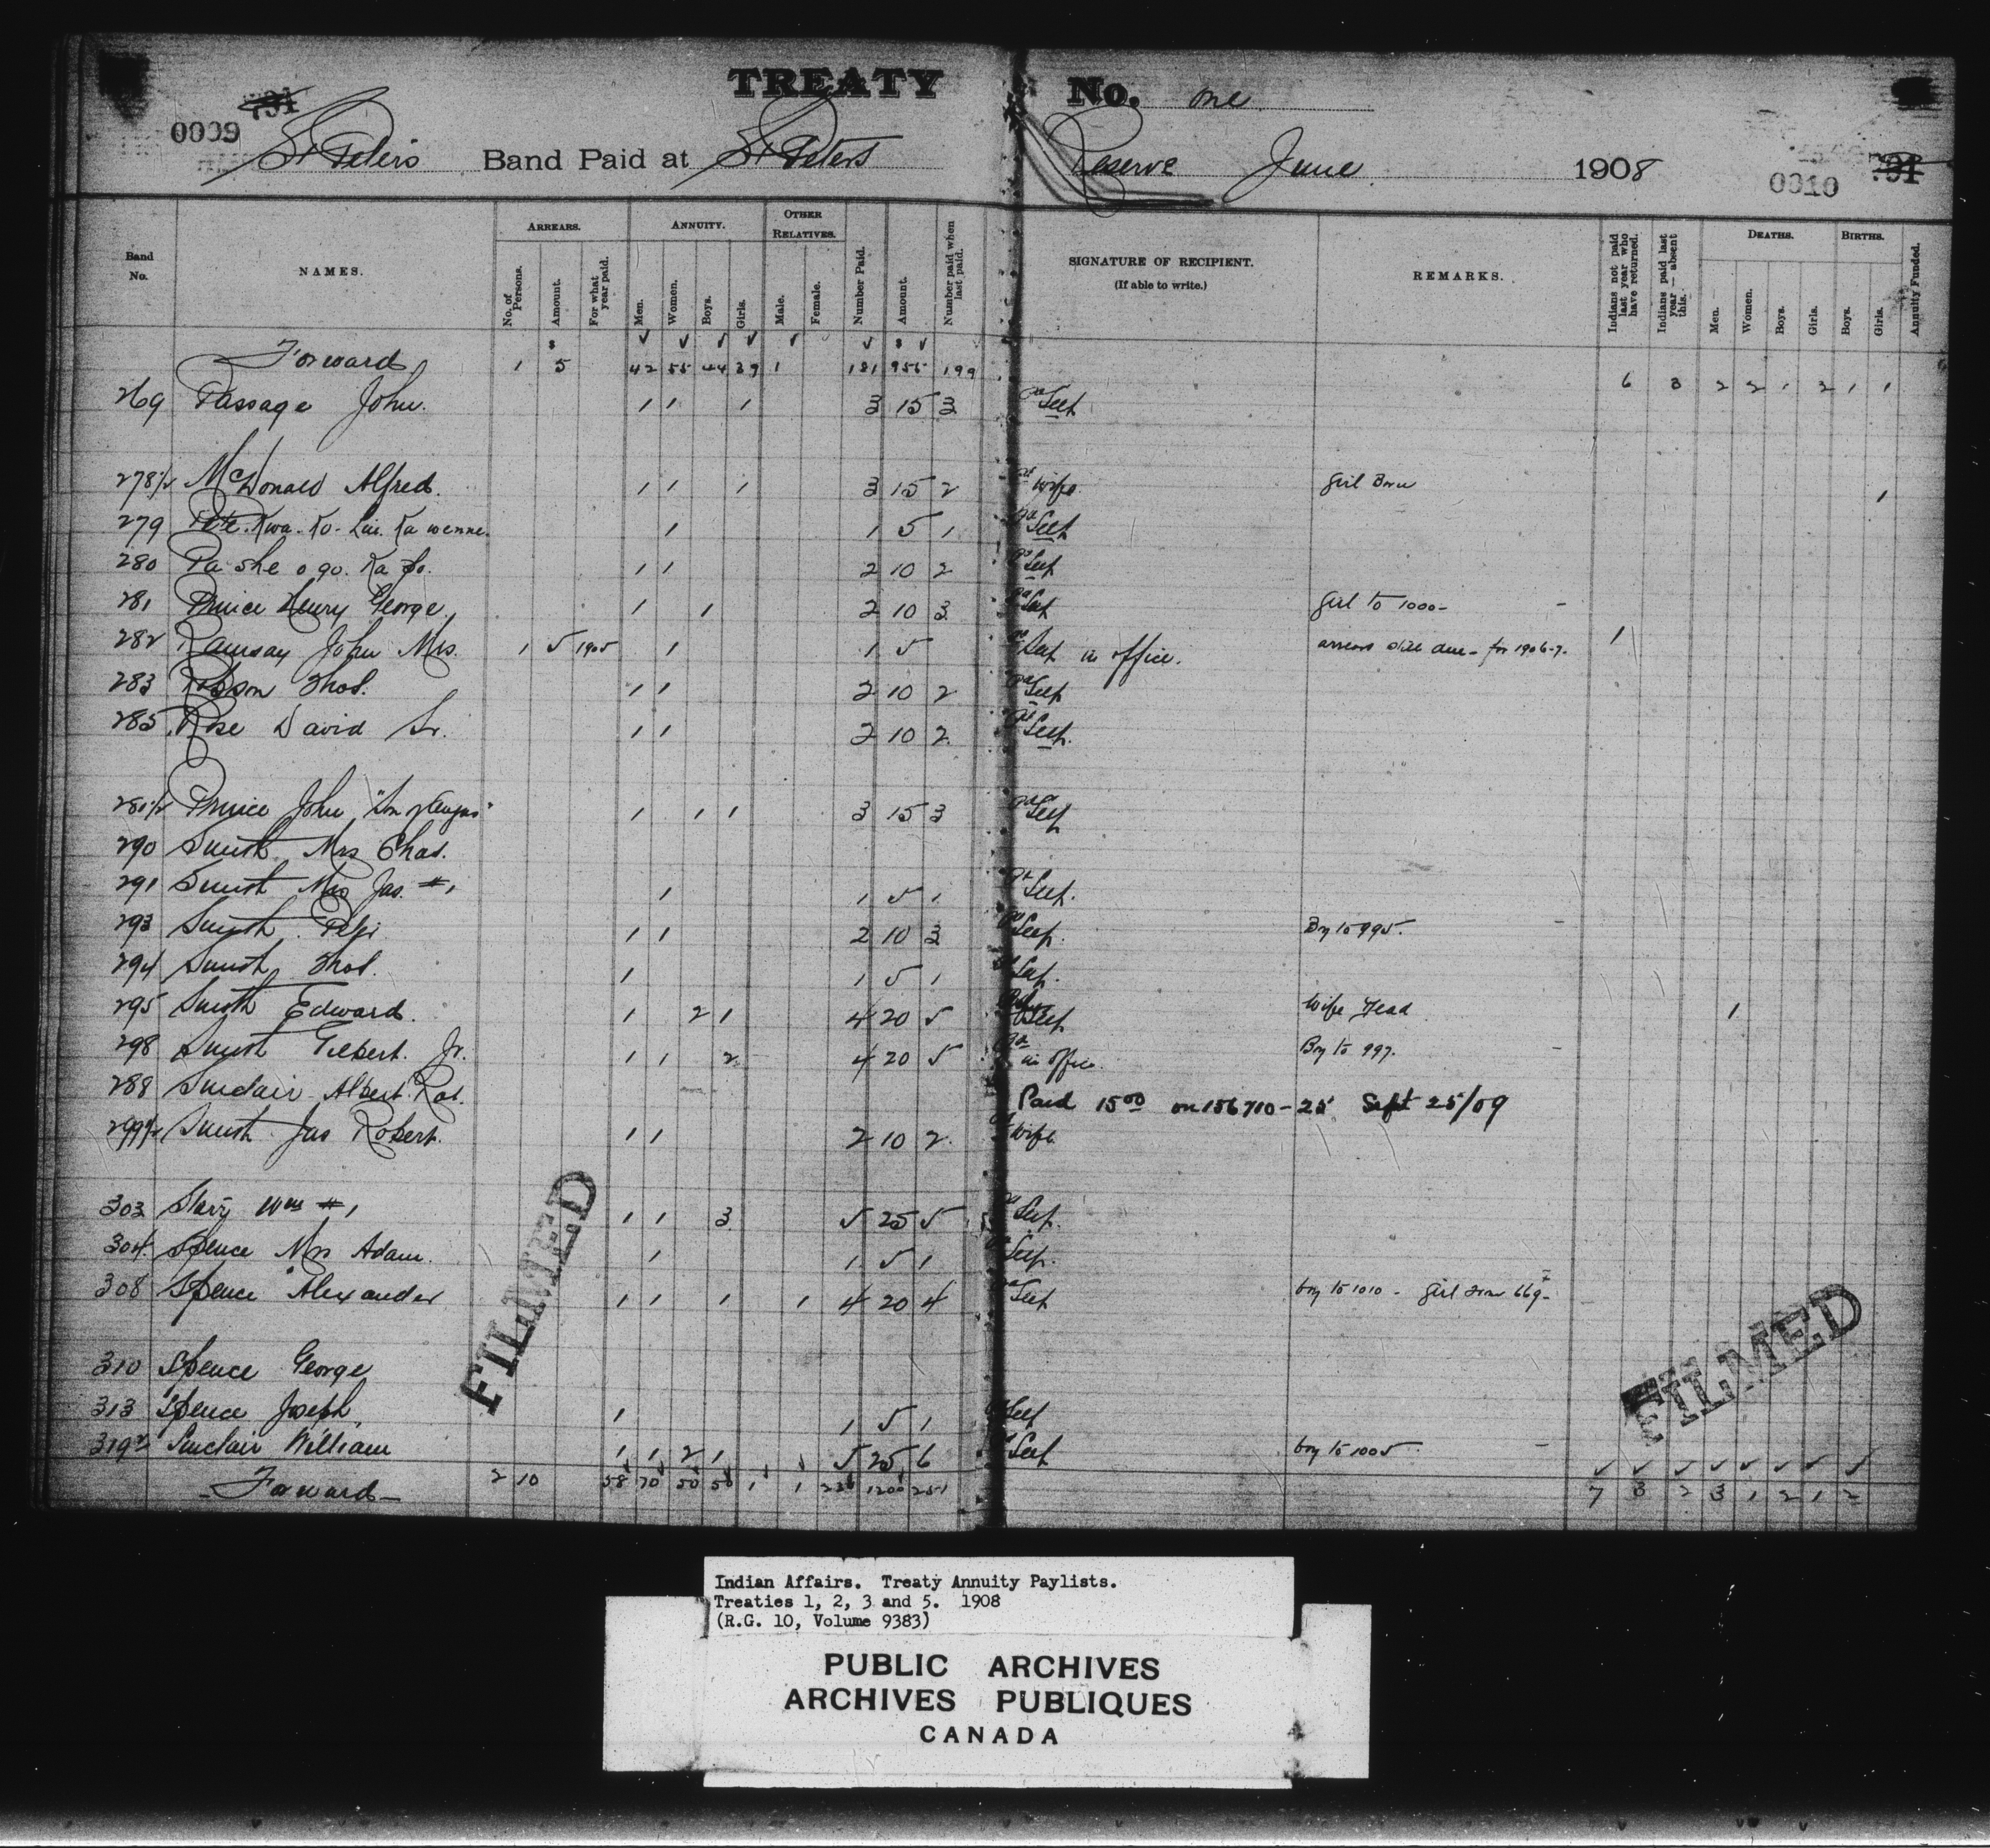 TREATY No. one
0009 791
St Peter's Band Paid at St Peters Reserve June 1908 0010 791
Band No. NAMES. ARREARS. No. of Persons. Amount. For what year paid. ANNUITY. Men. Women. Boys. Girls. OTHER RELATIVES. Male. Female. Number Paid. Amount. Number paid when last paid. SIGNATURE OF RECIPIENT. (If able to write.) REMARKS. Indians not paid last year who have returned. Indians paid last year — absent this. DEATHS. Men. Women. Boys. Girls. BIRTHS. Boys. Girls. Annuity Funded.
Forward 1 5 42 55 44 39 1 181 955 199 6 3 2 2 1 2 1 1
269 Passage John. 1 1 1 3 15 3 Self
278½ McDonald Alfred. 1 1 1 3 15 2 wife girl Born 1
279 1 1 5 1 Self
280 Pa she o go. Ka 1 1 2 10 2 Self
281 Prince Henry George 1 1 2 10 3 Self girl to 1000 -
282 Ramsay John Mrs. 1 5 1905 1 1 5 Self in office. arrears still due - for 1906-7. 1
283 Robson Thos. 1 1 2 10 2 Self
285 Rose David Sr. 1 1 2 10 2 Self.
281½ Prince John "Son of Angus" 1 1 1 3 15 3 Self
290 Smith Mrs Chas.
291 Smith Mrs Jas. #1 1 1 5 1 Self.
293 Smith 1 1 2 10 3 Self. Boy to 995. -
294 Smith Thos. 1 1 5 1 Self.
295 Smith Edward. 1 2 1 4 20 5 Self Wife Dead 1
298 Smith Gilbert. Jr. 1 1 2 4 20 5 in office. Boy to 997. -
288 Sinclair Albert Rob. Paid 15 00 on 156710-25 Sept 25/09
299½ Smith Jas Robert. 1 1 2 10 2 wife
303 Wm #1 1 1 3 5 25 5 Self.
304 Spence Mrs Adam. 1 1 5 1 Self.
308 Spence Alexander 1 1 1 1 4 20 4 Self boy to 1010 - girl from 669 -
310 Spence George
313 Spence Joseph 1 1 5 1 Self
319 Sinclair William 1 1 2 1 5 25 6 Self boy to 1005 -
- Forward - 2 10 58 70 50 50 1 1 1200 251 7 3 2 3 1 2 1 2
FILMED
FILMED
Indian Affairs. Treaty Annuity Paylists.
Treaties 1, 2, 3 and 5. 1908
(R.G. 10, Volume 9383)
PUBLIC ARCHIVES
ARCHIVES PUBLIQUES
CANADA